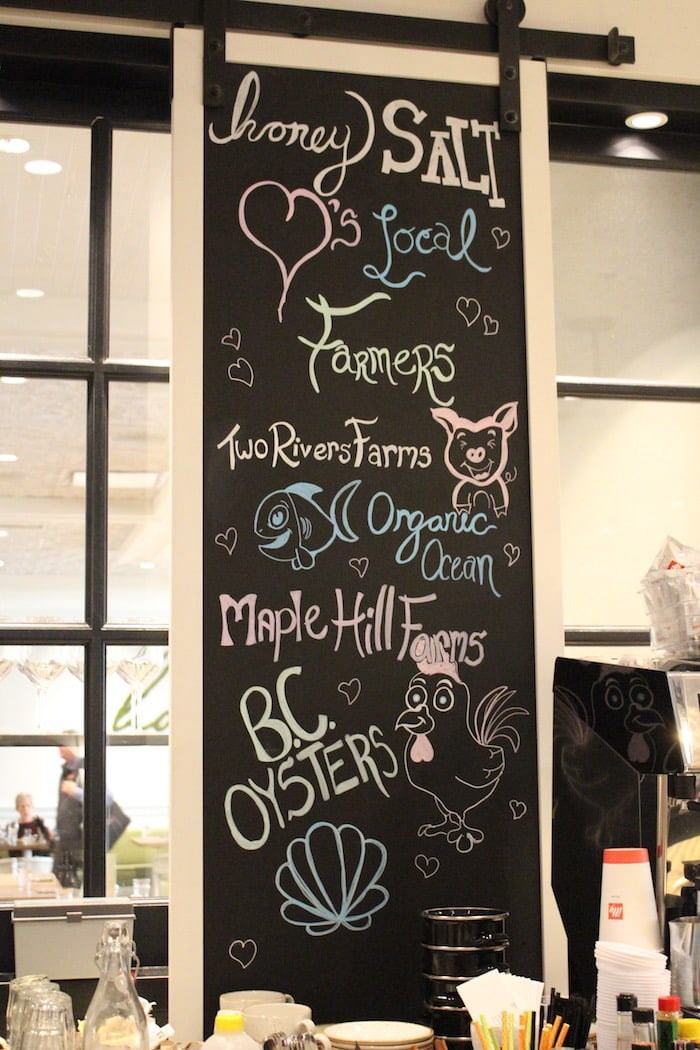 honey SALT
♥'s Local
Farmers
Two Rivers Farms
Organic
Ocean
Maple Hill Farms
B.C.
OYSTERS
illy